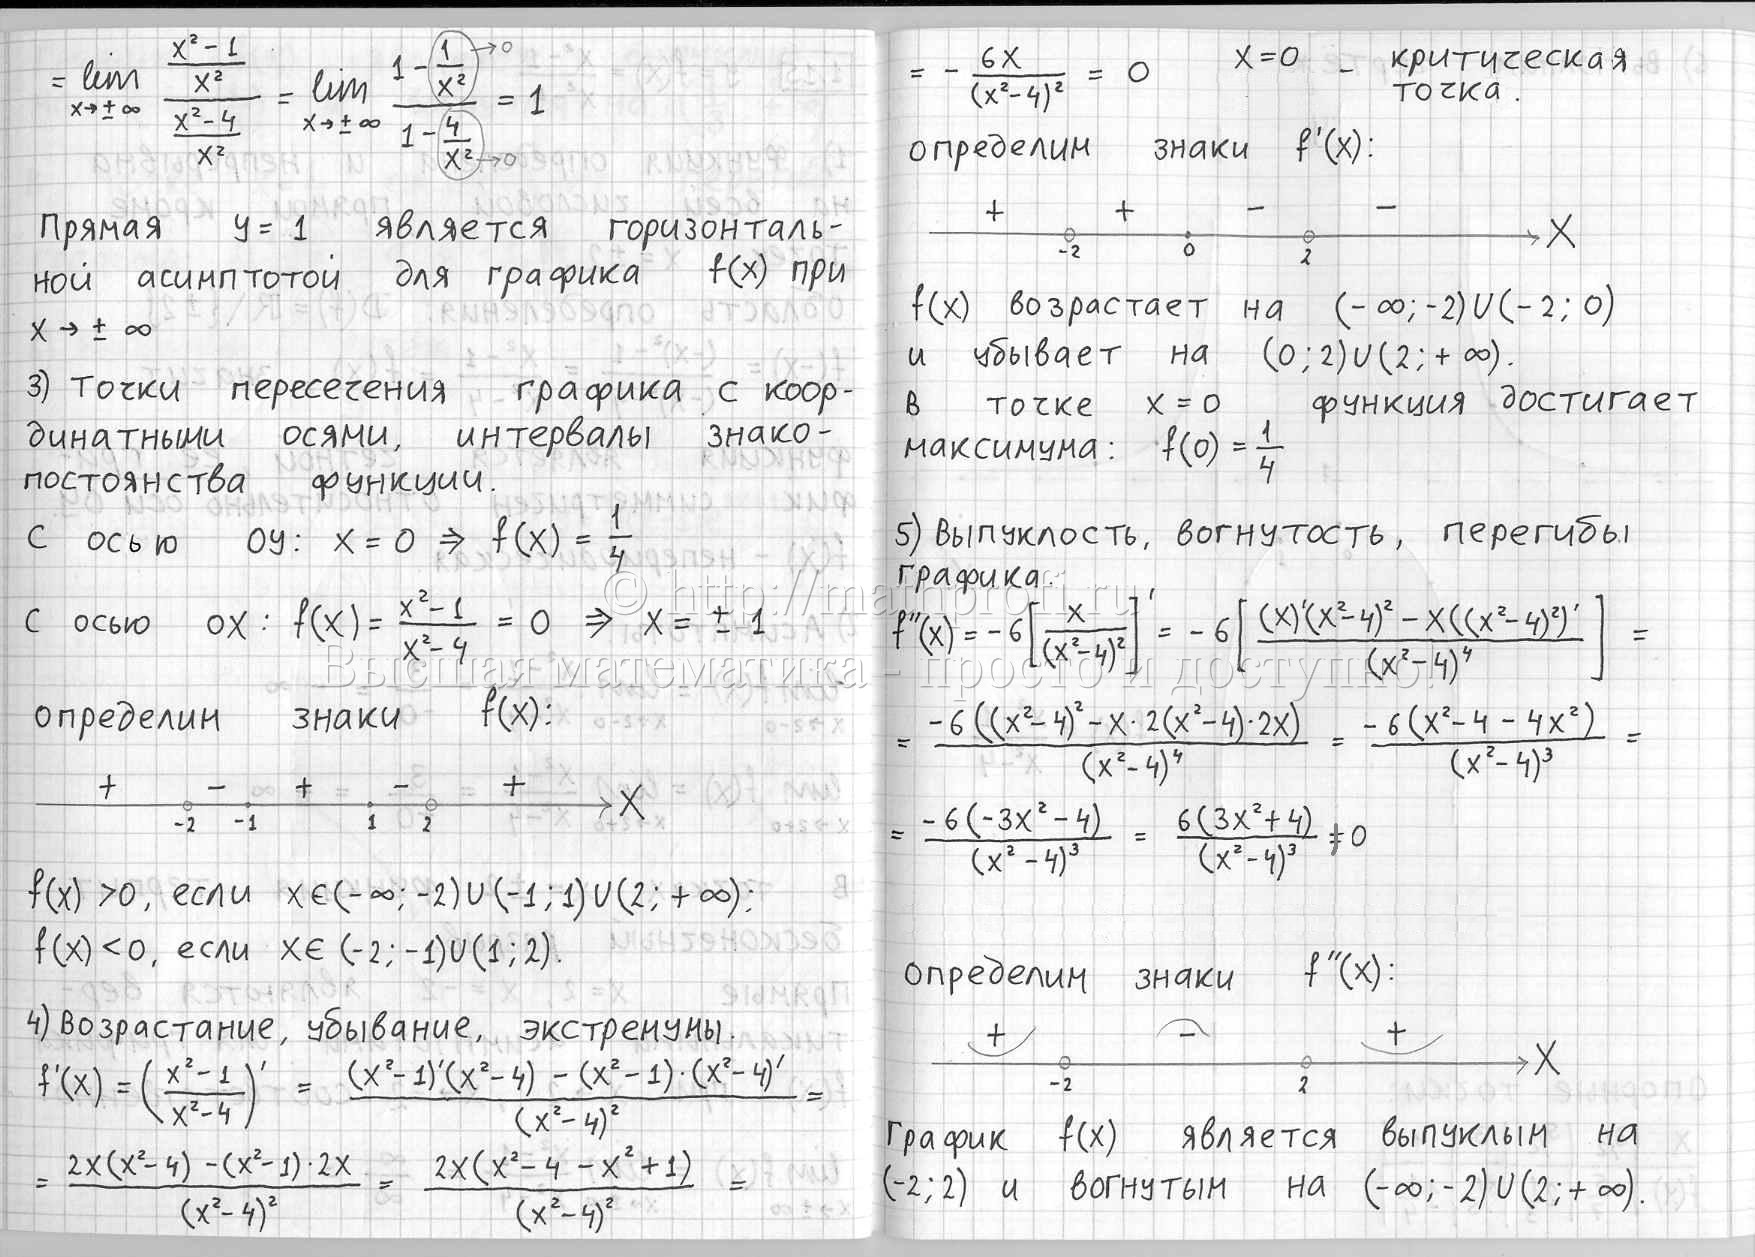 = lim x→±∞ ((x²-1)/x²)/((x²-4)/x²) = lim x→±∞ (1-1/x²→0)/(1-4/x²→0) = 1
Прямая y=1 является горизонталь-
ной асимптотой для графика f(x) при
x→±∞
3) Точки пересечения графика с коор-
динатными осями, интервалы знако-
постоянства функции.
С осью OY: x=0 ⇒ f(x)=1/4
С осью OX: f(x)=(x²-1)/(x²-4)=0 ⇒ x=±1
определим знаки f(x):
+ - + - +
-2 -1 1 2 X
f(x)>0, если x∈(-∞;-2)∪(-1;1)∪(2;+∞);
f(x)<0, если x∈(-2;-1)∪(1;2).
4) Возрастание, убывание, экстремумы.
f'(x)=((x²-1)/(x²-4))' = ((x²-1)'(x²-4)-(x²-1)·(x²-4)')/(x²-4)² =
= (2x(x²-4)-(x²-1)·2x)/(x²-4)² = (2x(x²-4-x²+1))/(x²-4)² =
= -6x/(x²-4)² = 0 x=0 - критическая
точка.
определим знаки f'(x):
+ + - -
-2 0 2 X
f(x) возрастает на (-∞;-2)∪(-2;0)
и убывает на (0;2)∪(2;+∞).
В точке x=0 функция достигает
максимума: f(0)=1/4
5) Выпуклость, вогнутость, перегибы
графика.
f''(x)=-6[x/(x²-4)²]' = -6[((x)'(x²-4)²-x((x²-4)²)')/(x²-4)⁴] =
= (-6((x²-4)²-x·2(x²-4)·2x))/(x²-4)⁴ = (-6(x²-4-4x²))/(x²-4)³ =
= (-6(-3x²-4))/(x²-4)³ = (6(3x²+4))/(x²-4)³ ≠ 0
определим знаки f''(x):
+ - +
-2 2 X
График f(x) является выпуклым на
(-2;2) и вогнутым на (-∞;-2)∪(2;+∞).
© http://mathprofi.ru
Высшая математика - просто и доступно!